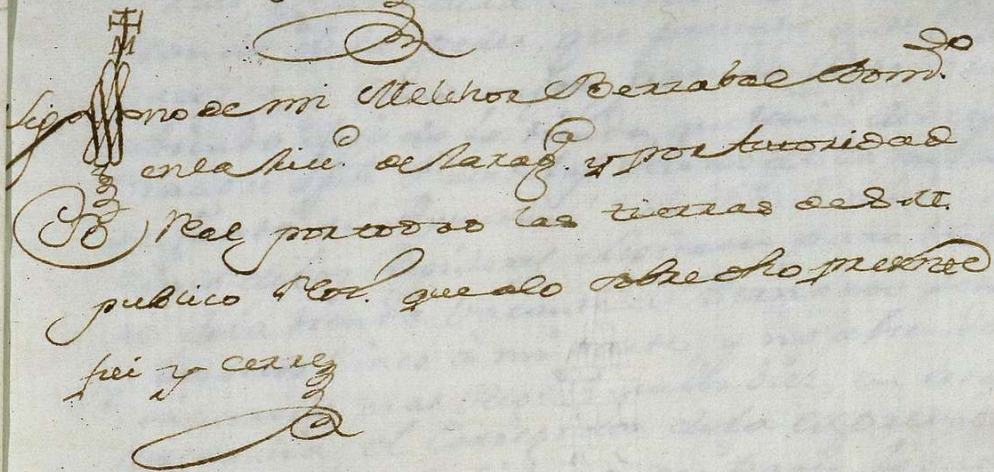 M
Sig no de mi Melchor Berrabal Dom.do
en la Ziu.d de Zarag.a y por autoridad
Real por todas las tierras de S. M.
publico Not. que a lo sobre dho presente
fui y cerre